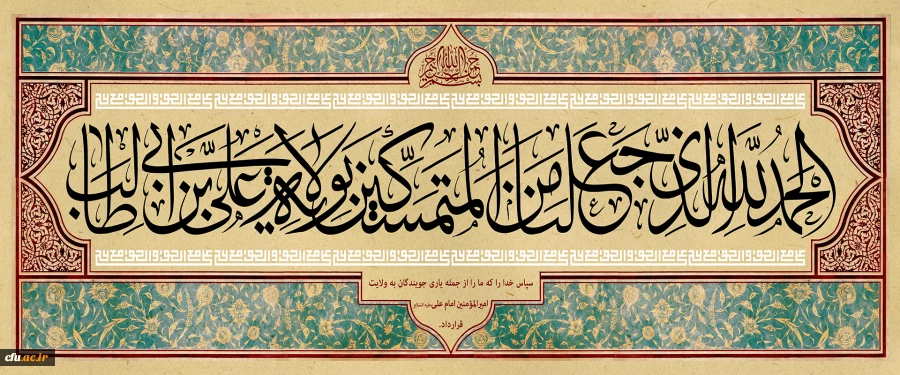 بسم الله الرحمن الرحیم
الحمد لله الذی جعلنا من المتمسکین بولایة علی بن ابی طالب
سپاس خدا را که ما را از جمله یاری جویندگان به ولایت
امیرالمؤمنین امام علی علیه السلام
قرارداد.
cfu.ac.ir